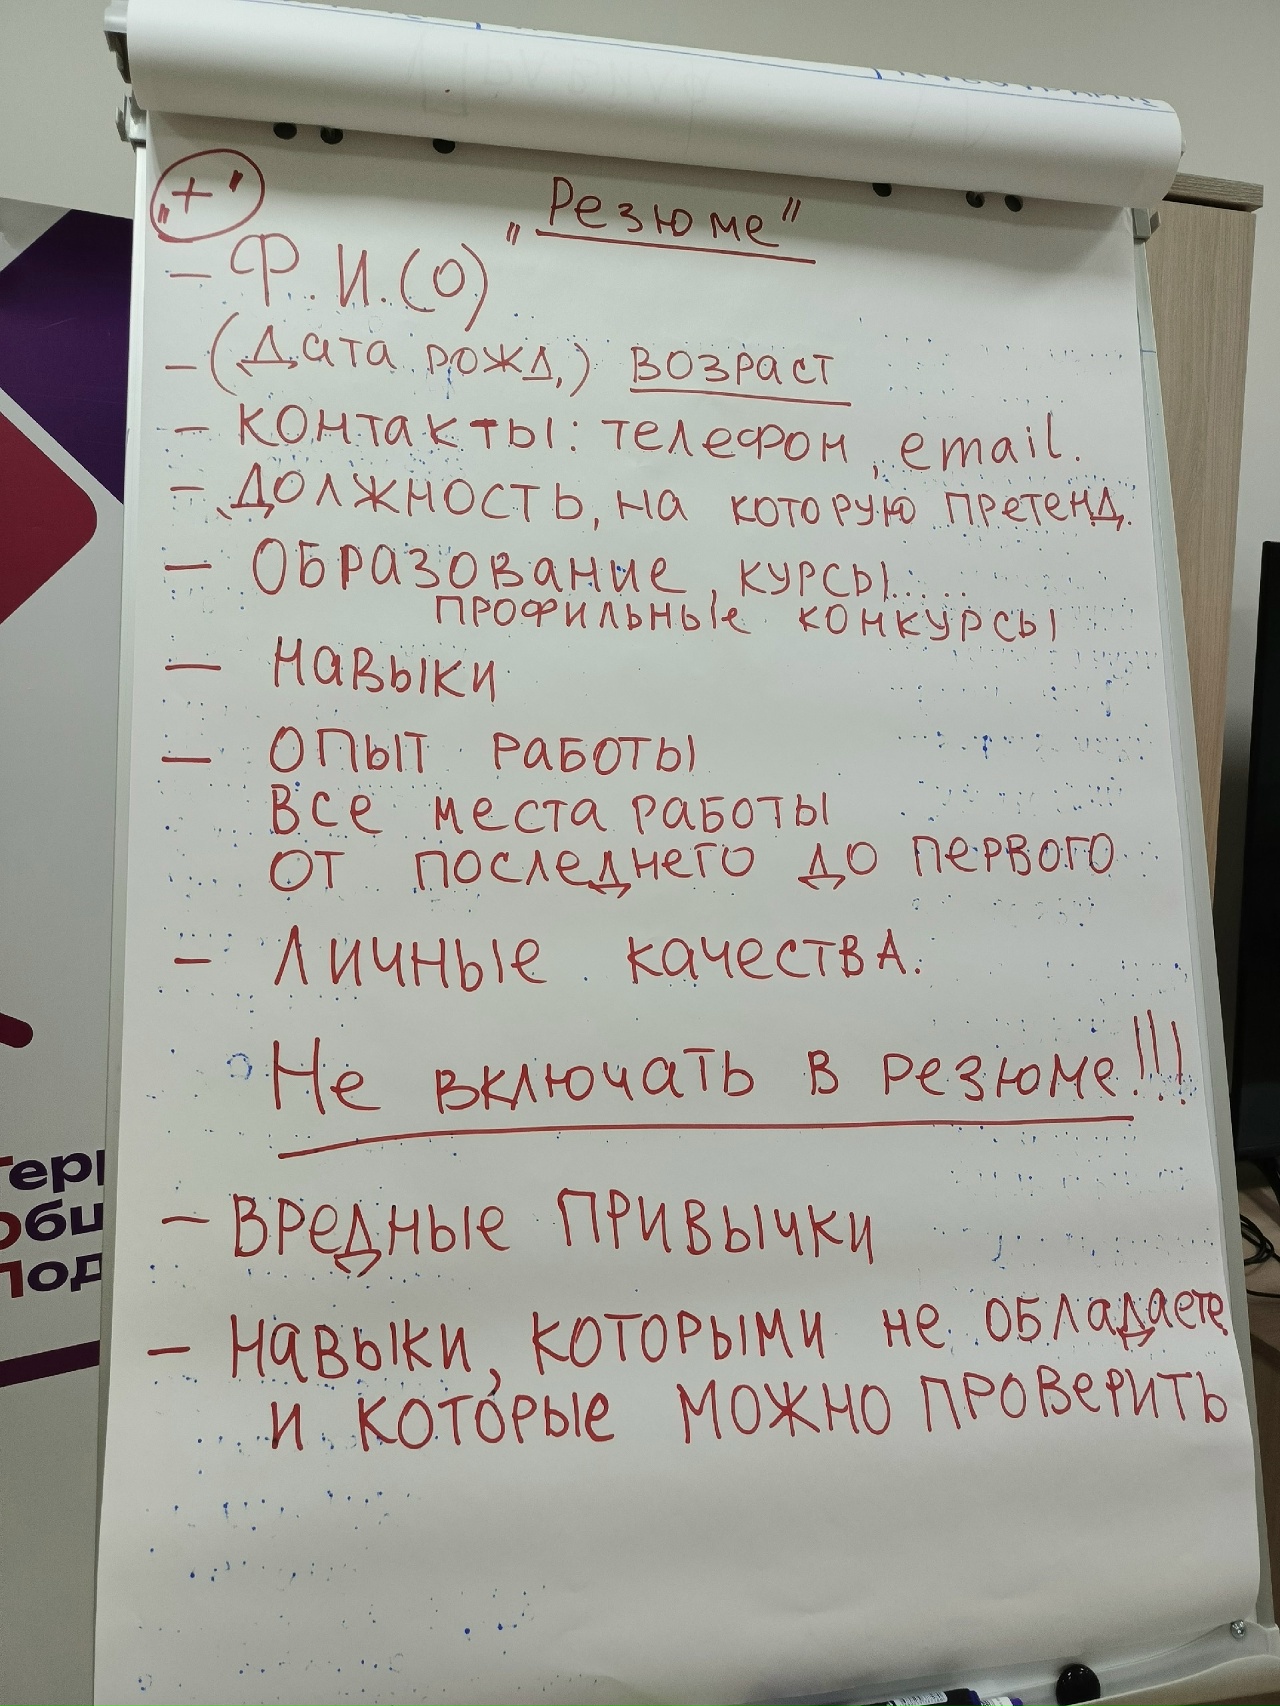 „+"
„Резюме"
– Ф.И.(О)
– (Дата рожд.) возраст
– контакты: телефон, email.
– Должность, на которую претенд.
– Образование, курсы.....
профильные конкурсы
– Навыки
– Опыт работы
все места работы
от последнего до первого
– Личные качества.
Не включать в резюме!!!
– Вредные привычки
– Навыки, которыми не обладаете
и которые можно проверить